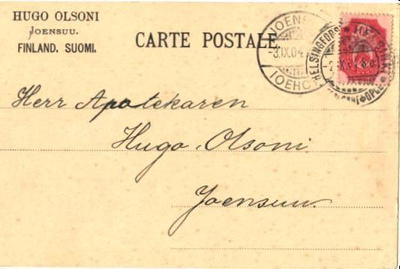 HUGO OLSONI
JOENSUU.
FINLAND. SUOMI.
CARTE POSTALE
JOENS
3.IX.04
IOEHC
HELSINGFORS
Herr Apotekaren
Hugo Olsoni.
Joensuu.